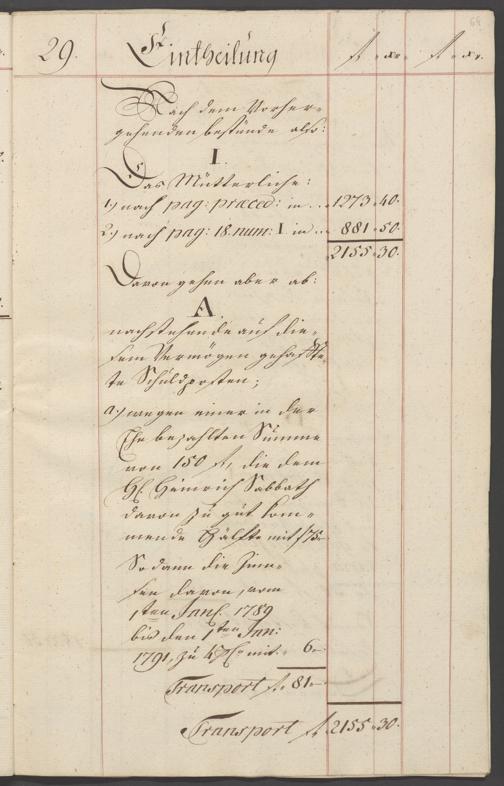 64
29. Eintheilung f. xr. f. xr.
Nach dem Vorher-
gehenden bestünde also:
I.
Das Mütterliche:
1.) nach pag: præced: in .. 1273. 40.
2.) nach pag: 18. num: I in .. 881. 50.
2155. 30.
Davon gehen aber ab:
A.
nachstehende auf die-
sem Vermögen gehafte-
te Schuldposten;
a.) wegen einer in der
Ehe bezahlten Summe
von 150 f, die dem
H. Heinrich Sabbath
davon zu gut kom-
mende Hälfte mit f 75.-
So dann die Zinn-
sen davon, vom
1ten Jan. 1789
bis den 1ten Jan:
1791, zu 4 mit. 6.-
Transport f. 81.-
Transport f. 2155. 30.